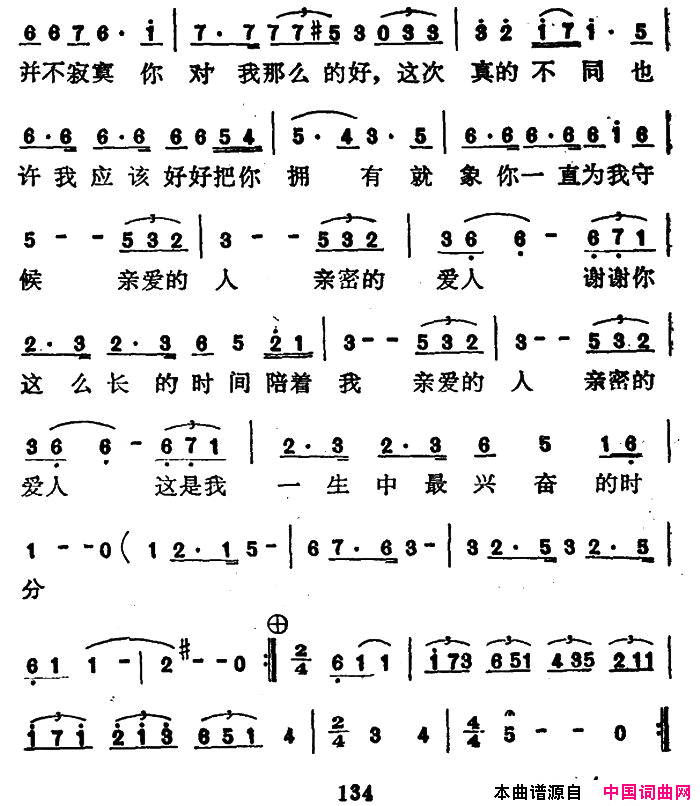 6 6 7 6· i | 7· 7 7 7 #5 3 0 3 3 | 3 2 i 7 i· 5 |
并不寂寞你对我那么的好，这次真的不同也
6·6 6·6 6 6 5 4 | 5· 4 3· 5 | 6·6 6·6 6 i 6 |
许我应该好好把你拥有就象你一直为我守
5 - - 5 3 2 | 3 - - 5 3 2 | 3 6 6 - 6 7 1 |
候亲爱的人亲密的爱人谢谢你
2·3 2·3 6 5 2 1 | 3 - - 5 3 2 | 3 - - 5 3 2 |
这么长的时间陪着我亲爱的人亲密的
3 6 6 - 6 7 1 | 2·3 2·3 6 5 1 6 |
爱人这是我一生中最兴奋的时
1 - - 0 ( 1 2·1 5 - | 6 7·6 3 - | 3 2·5 3 2·5 |
分
6 1 1 - | 2 #- - 0 :| 2/4 6 1 1 | i 7 3 6 5 1 4 3 5 2 1 1 |
i 7 i 2 i 3 6 5 1 4 | 2/4 3 4 | 4/4 5 - - 0 :|
134
本曲谱源自 中国词曲网